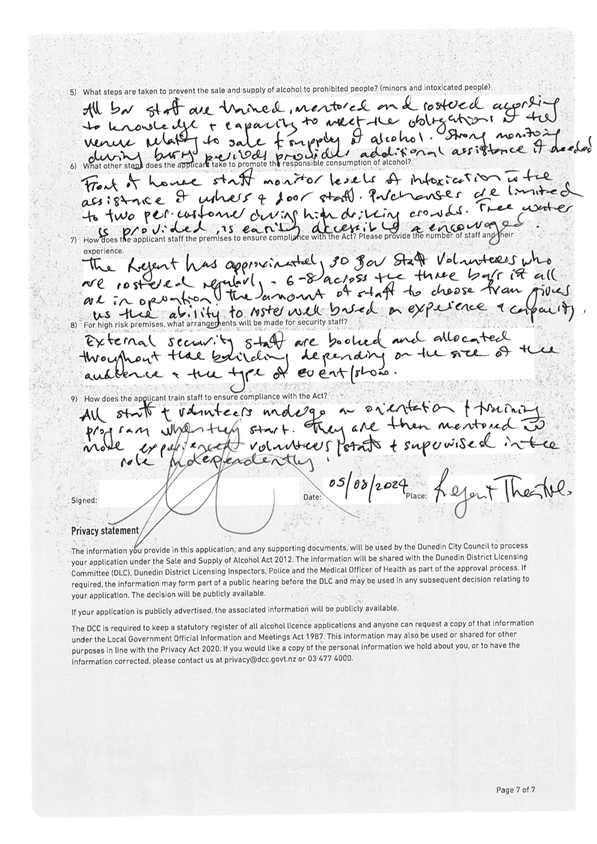 5) What steps are taken to prevent the sale and supply of alcohol to prohibited people? (minors and intoxicated people)
All bar staff are trained, mentored and rostered according
to knowledge + capacity to meet the obligations of the
venue relating to sale + supply of alcohol. Strong monitoring
during busy periods provides additional assistance if needed
6) What other steps does the applicant take to promote the responsible consumption of alcohol?
Front of house staff monitor levels of intoxication in the
assistance of ushers & door staff. Purchases are limited
to two per customer during high drinking crowds. Free water
is provided, is easily accessible & encouraged.
7) How does the applicant staff the premises to ensure compliance with the Act? Please provide the number of staff and their
experience.
The Regent has approximately 30 Bar Staff Volunteers who
are rostered regularly. 6-8 across the three bars if all
are in operation. The amount of staff to choose from gives
us the ability to roster well based on experience & capacity.
8) For high risk premises, what arrangements will be made for security staff?
External security staff are booked and allocated
throughout the building depending on the size of the
audience + the type of event/show.
9) How does the applicant train staff to ensure compliance with the Act?
All staff + volunteers undergo an orientation + training
program when they start. They are then mentored by
more experienced volunteers/staff + supervised in the
role independently.
Signed: Date: 05/08/2024 Place: Regent Theatre
Privacy statement
The information you provide in this application, and any supporting documents, will be used by the Dunedin City Council to process
your application under the Sale and Supply of Alcohol Act 2012. The information will be shared with the Dunedin District Licensing
Committee (DLC), Dunedin District Licensing Inspectors, Police and the Medical Officer of Health as part of the approval process. If
required, the information may form part of a public hearing before the DLC and may be used in any subsequent decision relating to
your application. The decision will be publicly available.
If your application is publicly advertised, the associated information will be publicly available.
The DCC is required to keep a statutory register of all alcohol licence applications and anyone can request a copy of that information
under the Local Government Official Information and Meetings Act 1987. This information may also be used or shared for other
purposes in line with the Privacy Act 2020. If you would like a copy of the personal information we hold about you, or to have the
information corrected, please contact us at privacy@dcc.govt.nz or 03 477 4000.
Page 7 of 7